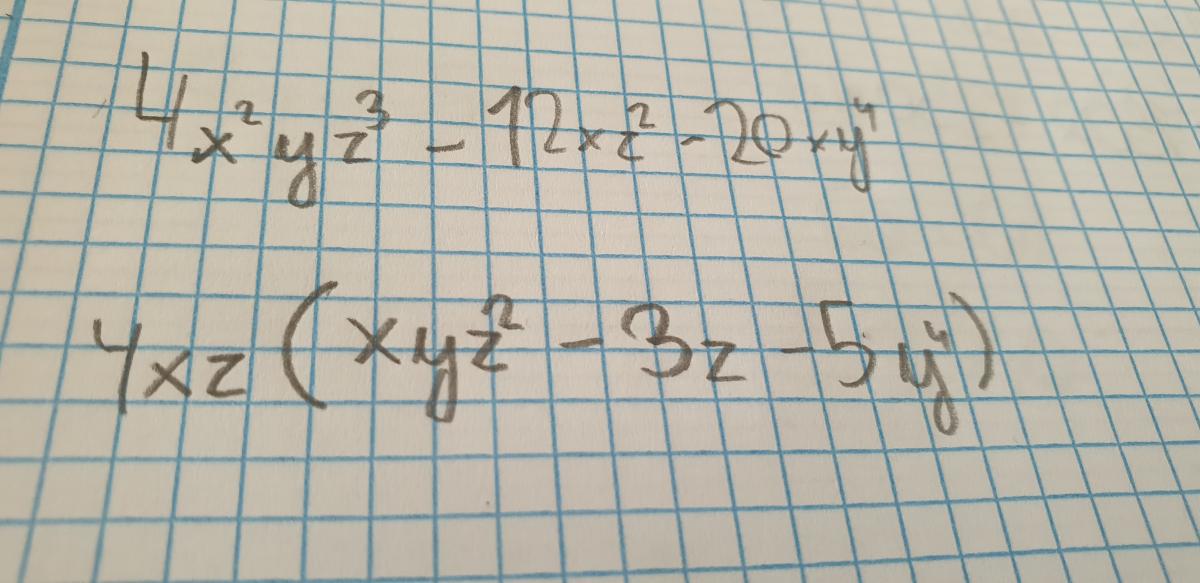 4x²yz³ - 12xz² - 20xy⁴
4xz (xyz² - 3z - 5y⁴)